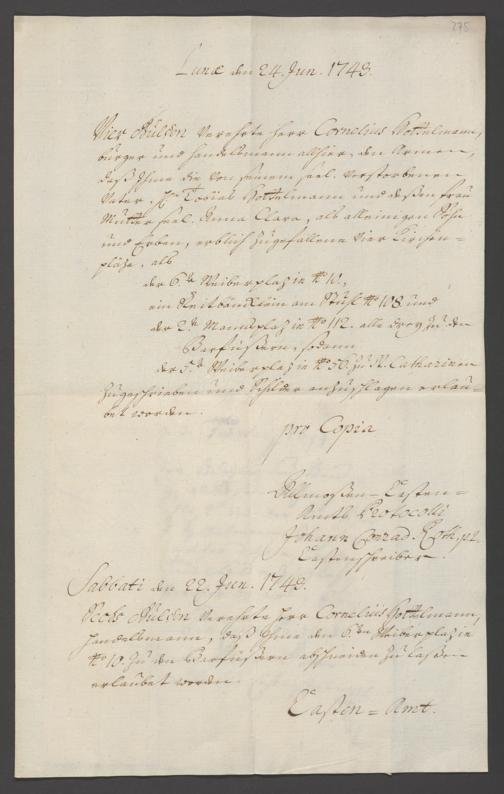 275
Lunæ den 24. Jun. 1748.
Vier Gülden verehrte Herr Cornelius Hottelmann,
burger und handelsmann allhier, den Armen,
daß Ihme die von seinem seel. verstorbenen
Vater, Hr. Tobias Hottelmann und deßen frau
Mutter seel. Anna Clara, als alleinigen Sohn
und Erben, erblich zugefallene Vier Kirchen-
plätze, als
der 6.te Weiberplaz in No 10,
ein Reitbänklein am Stuhl No 108. und
der 2.te Mannsplaz in No 112. alle drey zu den
Barfüssern, sodann
der 5.te Weiberplaz in No 50. zu St. Catharinen
zugeschrieben und Schilder anzuschlagen erlau-
bet worden.
pro Copia
Allmosen-Casten-
Amts Protocolli
Johann Conrad Roth, pt.
Castenschreiber.
Sabbati den 22. Jun. 1748.
Sechs Gülden verehrte Herr Cornelius Hottelmann,
handelsmann, daß Ihme den 6.ten Weiberplaz in
No 10. zu den Barfüssern abschneiden zu laßen
erlaubet worden.
Casten-Amt.